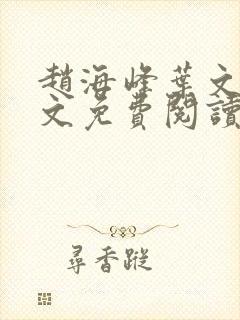 趙海峰葉文
文免費閱讀
尋香蹤